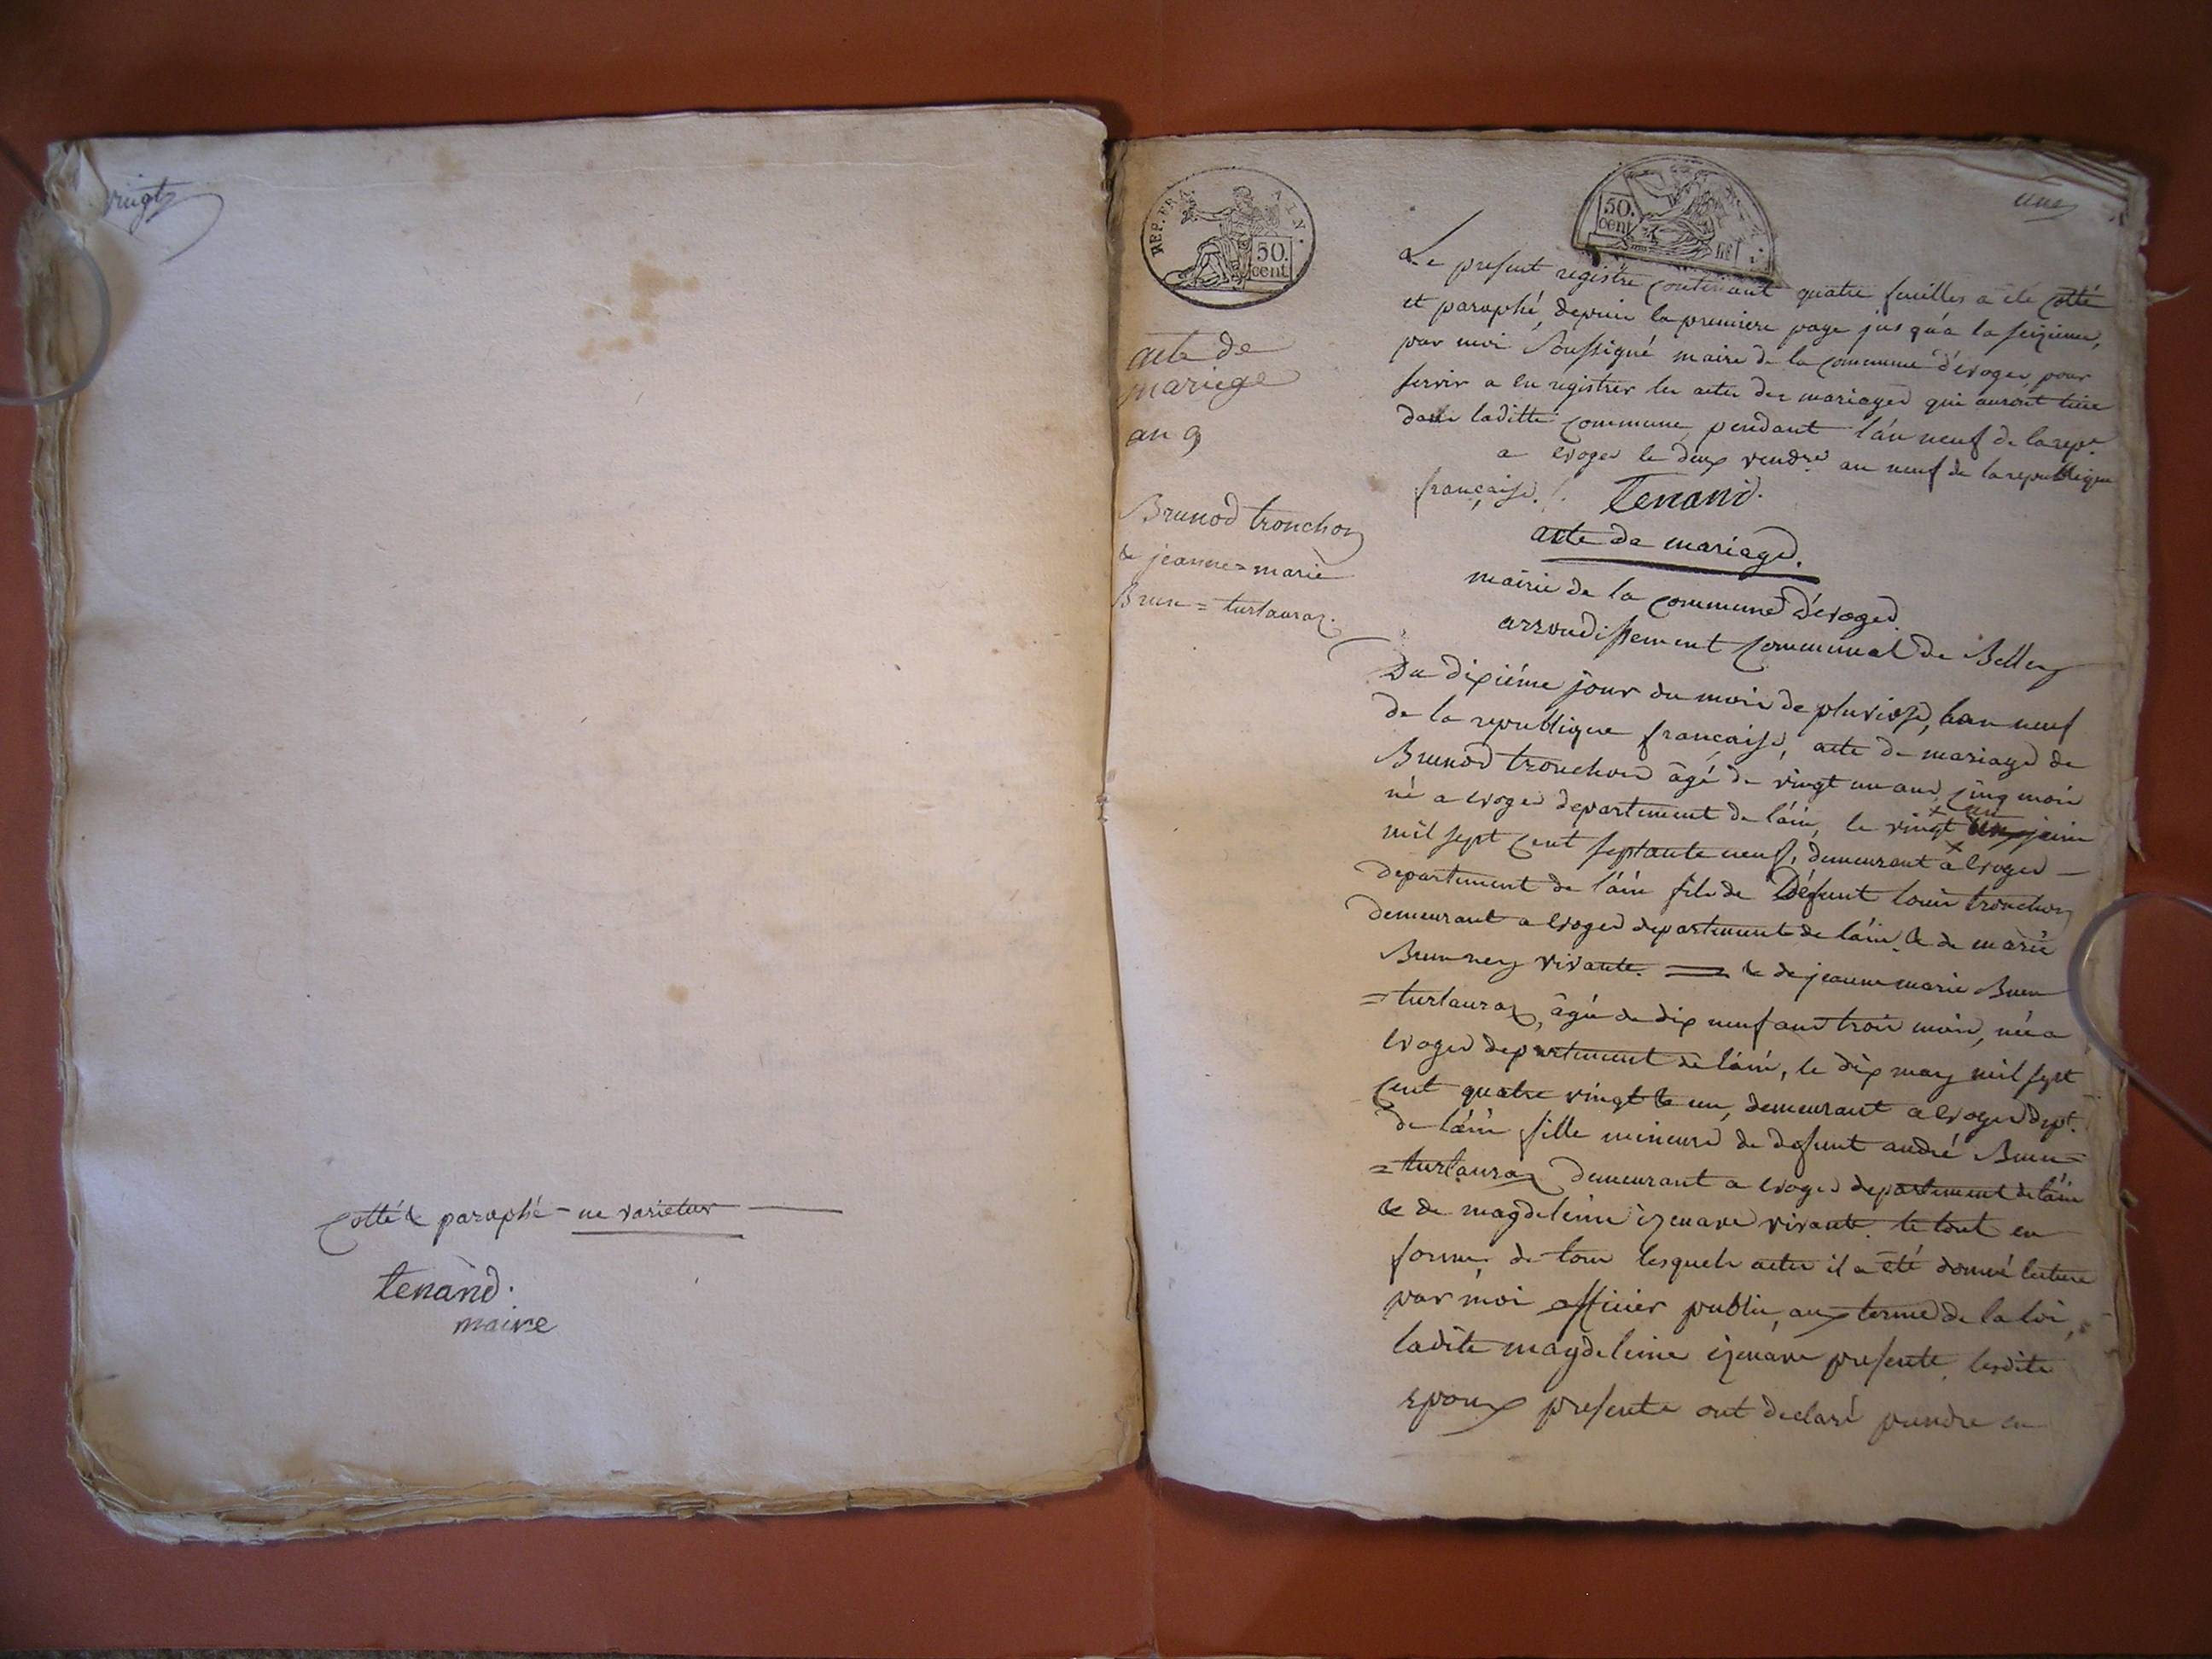 vingt
cotté & paraphé - ne varietur
tenand.
maire
REP. FRA. AIN.
50. cent.
50. cent
une
acte de
mariage
an 9
Brunod tronchon
& jeanne=marie
Brun=turlauraz.
Le present registre contenant quatre feuilles a été cotté
et paraphé, depuis la premiere page jusqu'a la seizieme,
par moi soussigné maire de la commune d'evoges, pour
servir a enregistrer les actes des mariages qui auront lieu
dans laditte commune, pendant l'an neuf de la rep.e
a evoges le deux vendre an neuf de la republique
française. Tenand.
acte de mariage.
mairie de la commune d'evoges.
arrondissement communal de Belley
Du dixiéme jour du mois de pluviose, l'an neuf
de la republique française, acte de mariage de
Brunod tronchon âgé de vingt un ans cinq mois
né a evoges departement de l'ain, le vingt un juin
mil sept cent septante neuf, demeurant a evoges
departement de l'ain fils de défunt louis tronchon
demeurant a evoges departement de l'ain & de marie
Brun vivante. & de jeanne marie Brun
=turlauraz, âgée de dix neuf ans trois mois, née a
evoges departement de l'ain, le dix may mil sept
cent quatre vingt & un, demeurant a evoges dept.
de l'ain fille mineure de defunt andré Brun=
=turlauraz demeurant a evoges departement de l'ain
& de magdeleine izenave vivante. le tout en
forme, de tous lesquels actes il a été donné lecture
par moi officier public, aux terme de la loi,
ladite magdeleine izenave presente, lesdits
epoux presents ont declaré prendre en